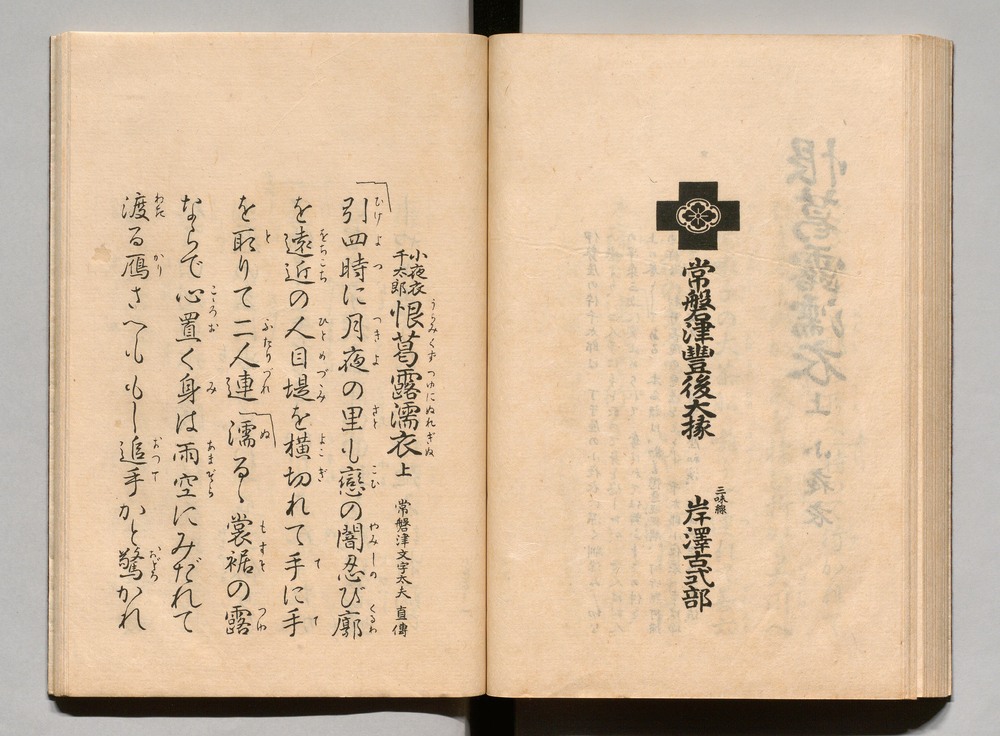 常磐津豐後大掾
三味線 岸澤古式部
小夜衣
千太郎 恨葛露濡衣 上 常磐津文字太夫 直傳
引四時に月夜の里も戀の闇忍び廓
を遠近の人目堤を横切れて手に手
を取りて二人連濡るゝ裳裾の露
ならで心置く身は雨空にみだれて
渡る雁さへももし追手かと驚かれ